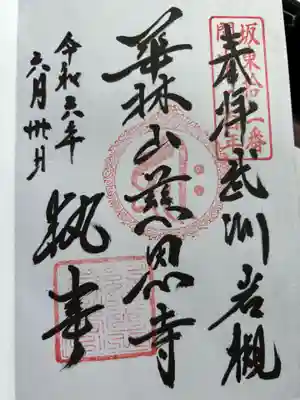 坂東第十二番
奉拝 武州岩槻
華林山慈恩寺
執事
令和六年
六月卅日